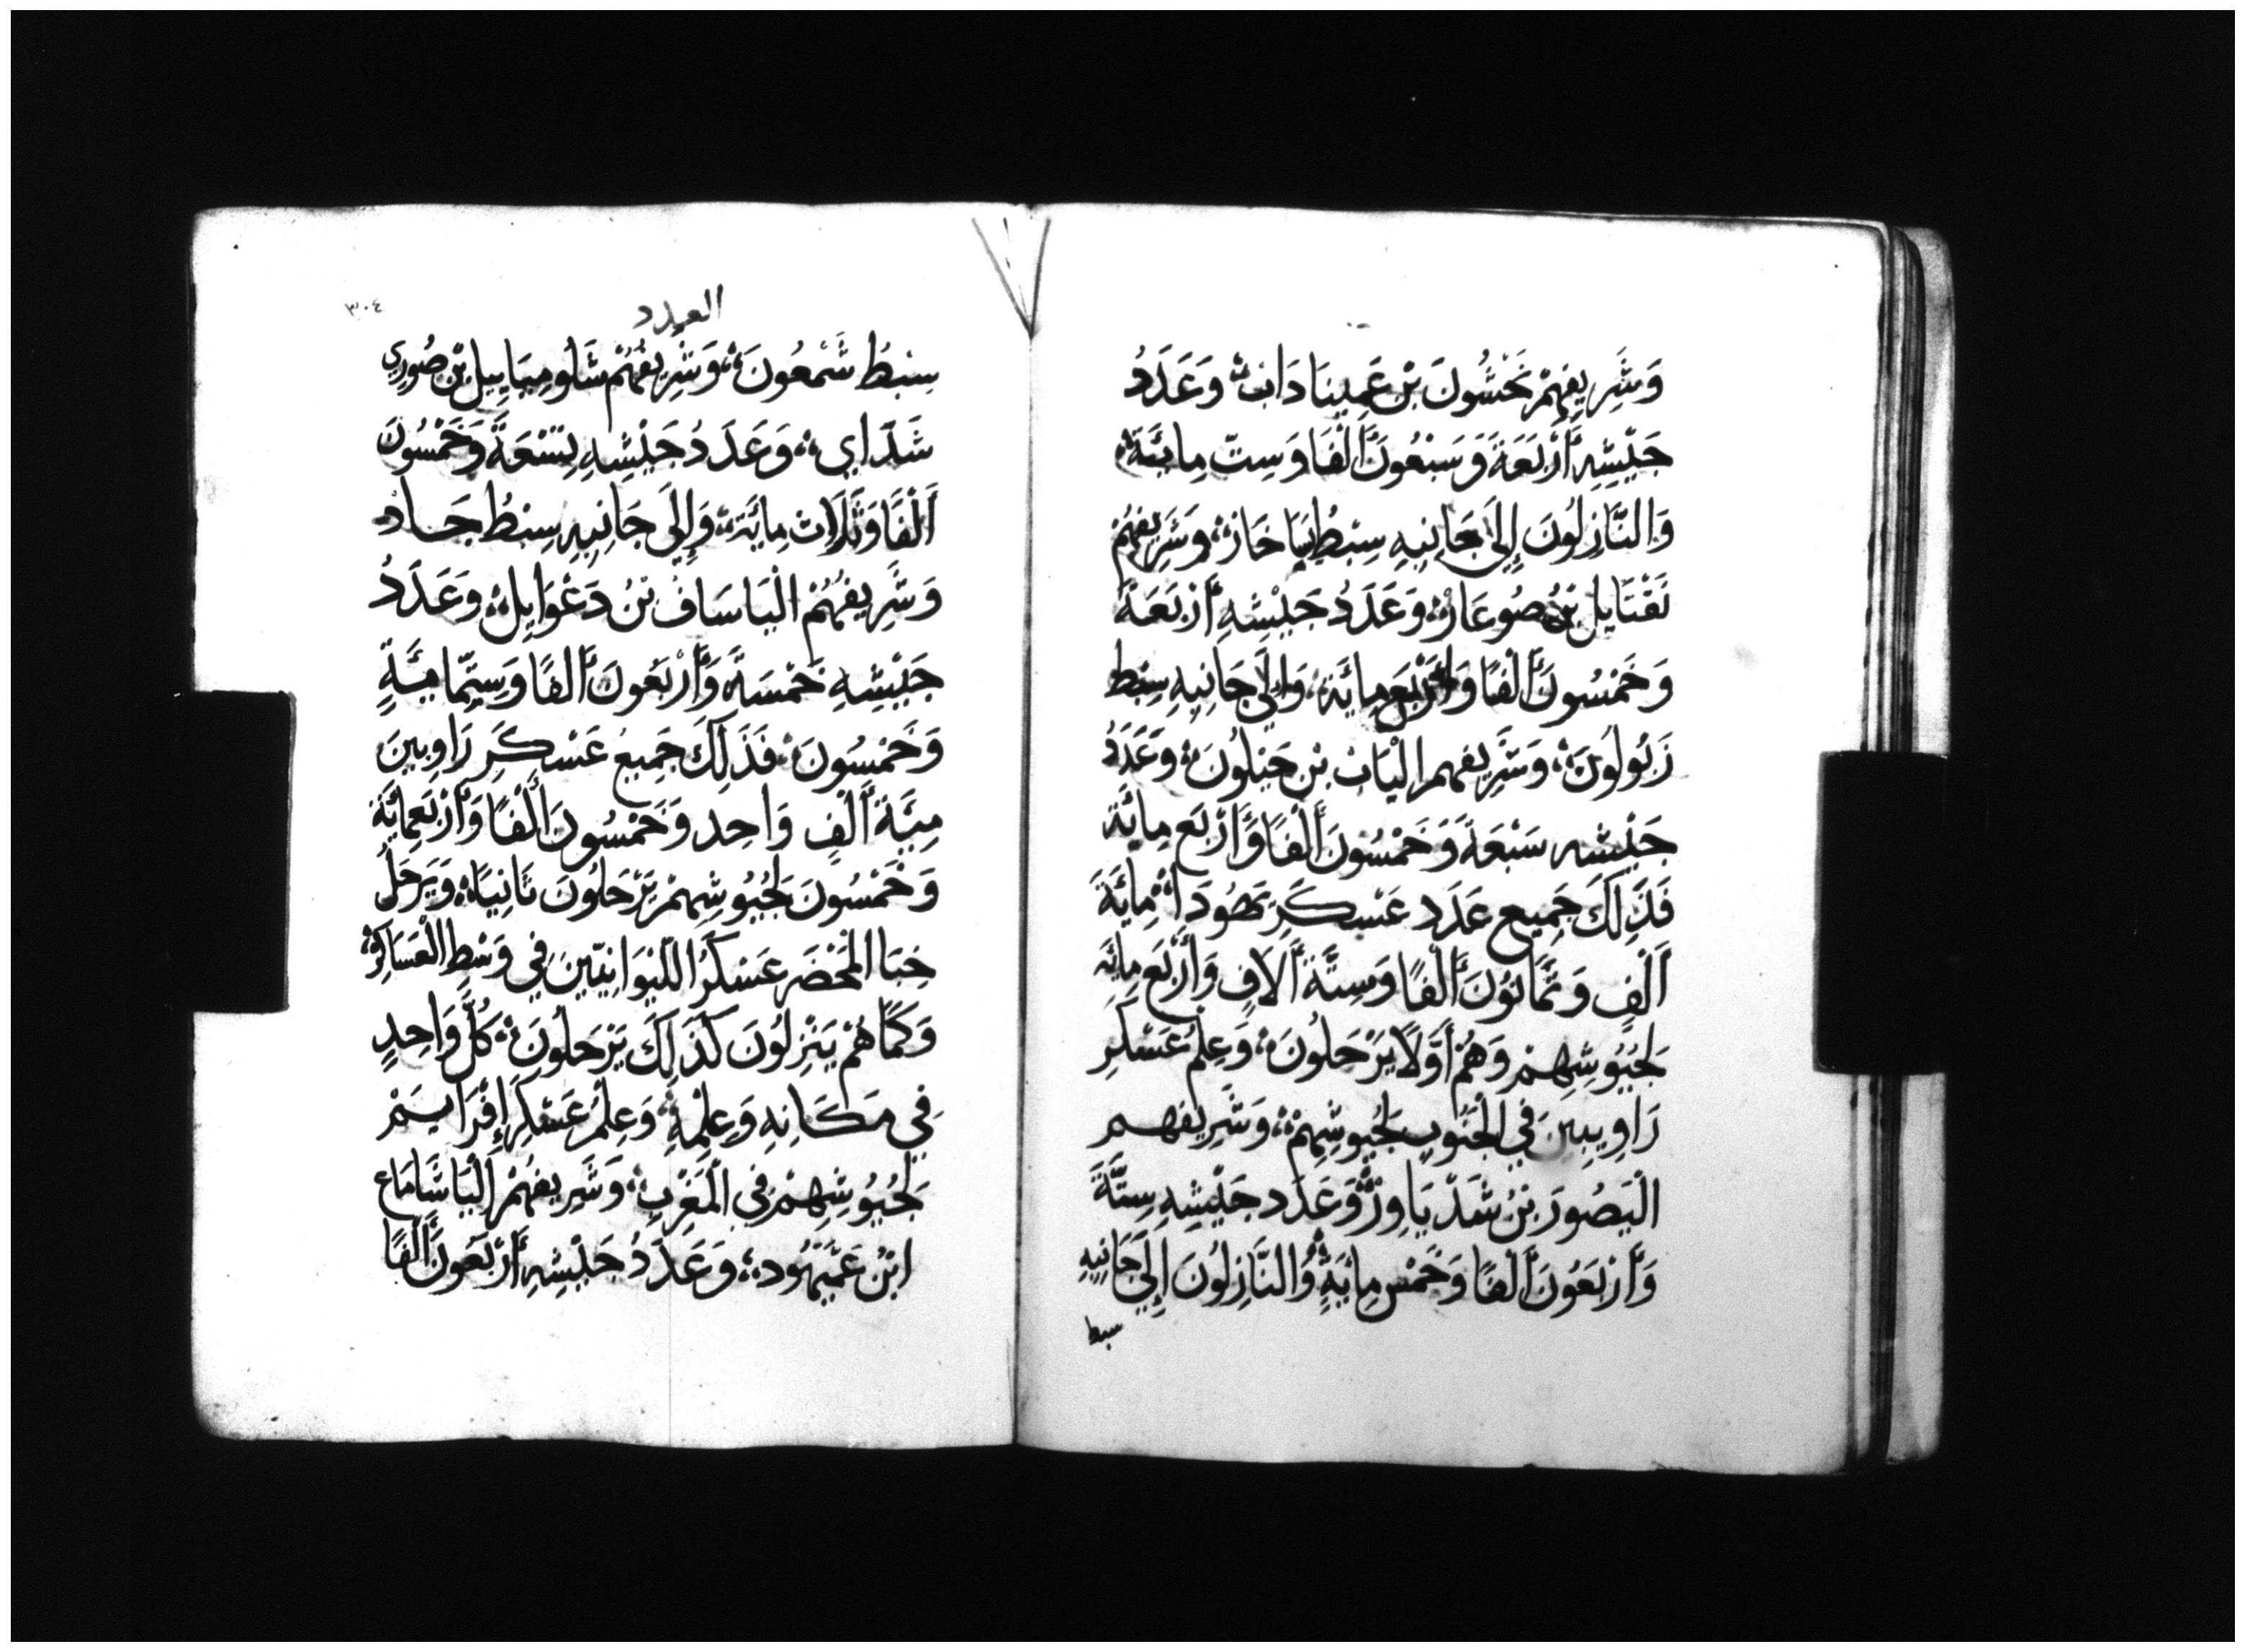 وَشَرِيفِهِمْ نَحْشُونَ بْن عَمِينَادَاب؛ وَعَدَدُ
جَيْشِهِ أَرْبَعَةَ وَسَبْعُونَ أَلْفًا وَسِتّ مِائَة؛
وَالنَّازِلُونَ إِلَى جَانِبِهِ سِبْطُ يسَاخَار؛ وَشَرِيفهُمْ
نَثَنَايل بْنُ صُوعَار؛ وَعَدَدُ جَيْشِهِ أَرْبَعَة
وَخَمْسُونَ أَلْفًا وَأَرْبَع مِائَة؛ وَإِلَى جَانِبِهِ سِبْط
زَبُولُونَ؛ وَشَرِيفهم اليَاب بْن حَيْلُونَ؛ وَعَدَدُ
جَيْشه سَبْعَةً وَخَمْسُونَ أَلْفًا وَأَرْبَع مِائَة
فَذَلِكَ جَمِيع عَدَد عَسْكَرِ يَهُودَا؛ مِائَةَ
أَلْفٍ وَثَمَانُونَ أَلْفًا وَسِتَّةَ أَلافٍ وَأَرْبَع مِائَة
لِجُيُوشِهِمْ وَهُمْ أَوَّلًا يَرْحَلُونَ؛ وَعَلَمُ عَسْكَرِ
رَاوِبِينَ فِي الْجَنُوبِ لِجُيُوشِهِمْ؛ وَشَرِيفهم
الْيَصُورَ بْنُ شَدْيَاوِرْ؛ وَعَدَد جَيْشِهِ سِتَّةَ
وَأَرْبَعُونَ أَلْفًا وَخَمْس مِائَةٍ؛ وَالنَّازِلُونَ إِلَى جَانِبِهِ
سبط
٣٠٤
العدد
سِبْطُ شَمْعُونَ؛ وَشَرِيفُهُمْ شَلُومِيَايِيل بْن صُورِي
شَدَّاي؛ وَعَدَدُ جَيْشِهِ تِسْعَةً وَخَمْسُونَ
أَلْفًا وَثَلَاث مِائَة؛ وَإِلَى جَانِبِهِ سِبْطُ جَاد
وَشَرِيفُهُمْ الْيَاسَاف بْنُ دَعْوَايِل؛ وَعَدَدُ
جَيْشِهِ خَمْسَةً وَأَرْبَعُونَ أَلْفًا وَسِتَّمَايَةٍ
وَخَمْسُونَ؛ فَذَلِكَ جَمِيعُ عَسْكَرِ رَاوِبينَ
مِيَةَ أَلْفٍ وَاحِد وَخَمْسُونَ أَلْفًا وَأَرْبَعمِايَة
وَخَمْسُونَ لِجُيُوشِهِمْ يَرْحَلُونَ ثَانِيًا؛ وَيَرْحَلُ
خِبَا الْمَحْضَر عَسْكَرُ اللَّيْوَانِيّينَ فِي وَسْطِ الْعَسَاكِر؛
وَكَمَا هُمْ يَنْزِلُونَ كَذَلِكَ يَرْحَلُونَ؛ كُلُّ وَاحِدٍ
فِي مَكَانِهِ وَعِلْمِهِ؛ وَعِلْمُ عَسْكَرِ إِفْرَايِمْ
لِجُيُوشِهِمْ فِي الْمَغْرِبِ؛ وَشَرِيفُهُمْ الْيَاشَامَاع
ابْنُ عَمِّيهُود؛ وَعَدَدُ جَيْشِهِ أَرْبَعُونَ أَلْفًا